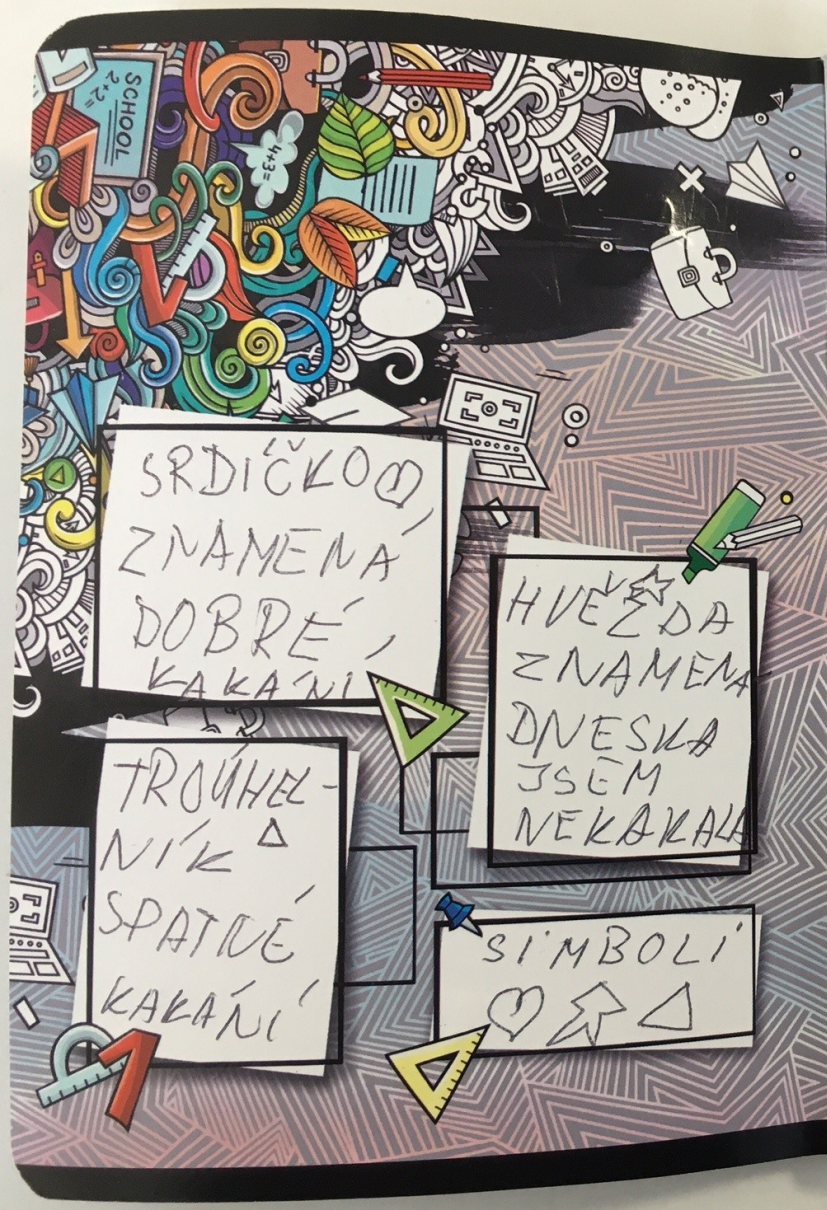 SCHOOL
2+2=
4+3=
SRDÍČKO
ZNAMENÁ
DOBRÉ
KAKÁNÍ
HVĚZDA
ZNAMENA
DNESKA
JSEM
NEKAKALA
TROÚHEL-
NÍK
SPATNÉ
KAKÁNÍ
SIMBOLI